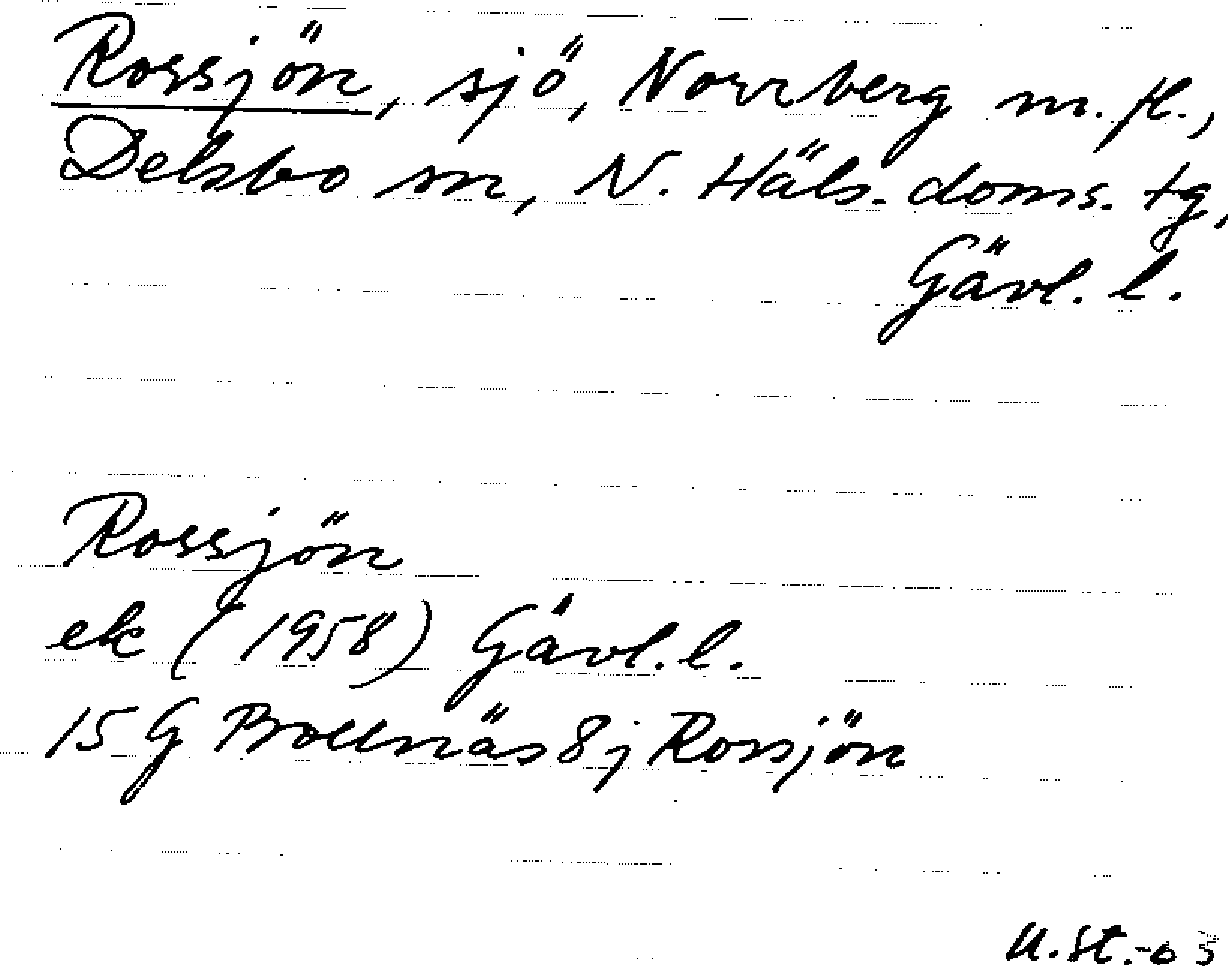 Rossjön, sjö, Norrberg m. fl.,
Delsbo sn, N. Häls. doms. tg,
Gävl. l.
Rossjön
ek (1958) Gävl. l.
15 G Bollnäs 8j Rossjön
U. St.-o